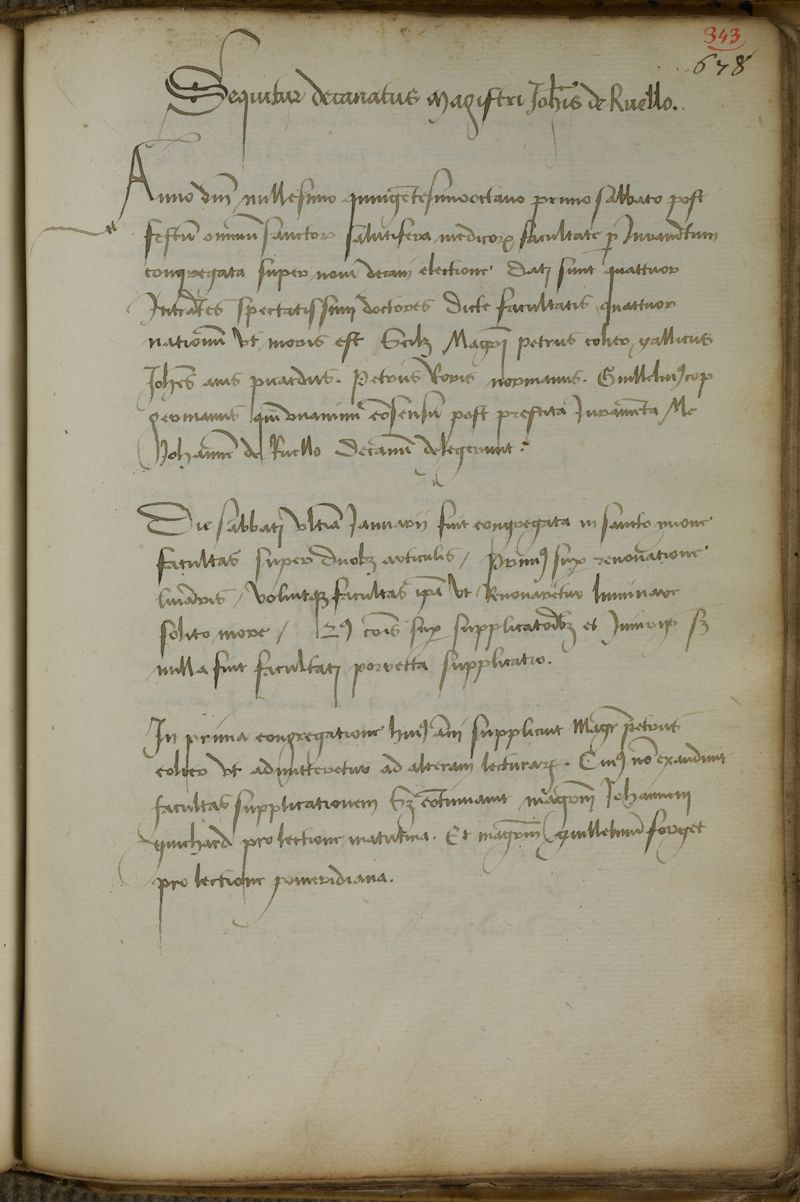 343
678
Sequitur decanatus Magistri Joh̃is de Ruello.
Anno dñi millesimo quingẽtesimooctavo primo sabbato post
festũ omniũ sanctor salutifera medicorꝝ facultate ꝑ Juramẽtum
congregata super novi decani electione Dati sunt quattuor
Intrãtes spectatissimi doctores dicte facultatis quattuor
nationũ Vt moris est Scilꝫ Magr̃i petrus gallicus
Joh̃es avis picardus. Petrus Rosis normanus. Guillelmꝰ cop
germanus qui vnanimi cõsensu post prestita Juramẽta Me
Johannẽ de Ruello Decanũ delegerunt.
Die sabbati vltĩa Januarii fuit congregata in sancto yvone
facultas super duobꝫ articulis / Primꝰ suꝑ renovatione
lumĩaris / voluitqꝫ facultas ip̃a Vt Renovaretur luminare
solito more / 2ꝰ cõis suꝑ supplicatiõibꝫ et Iniuriis sꝫ
nulla fuit facultati porrecta supplicatio.
In prima congregatione huiꝰ añi supplicavit Magr̃ petrus
vt admitteretur ad alteram lecturarꝝ. Cuiꝰ nõ exaudivit
facultas supplicationem Sꝫ cõtinuavit magr̃m Johannem
guichard pro lectione matutina. Et magr̃m guillelmũ forget
pro lectione pomeridiana.